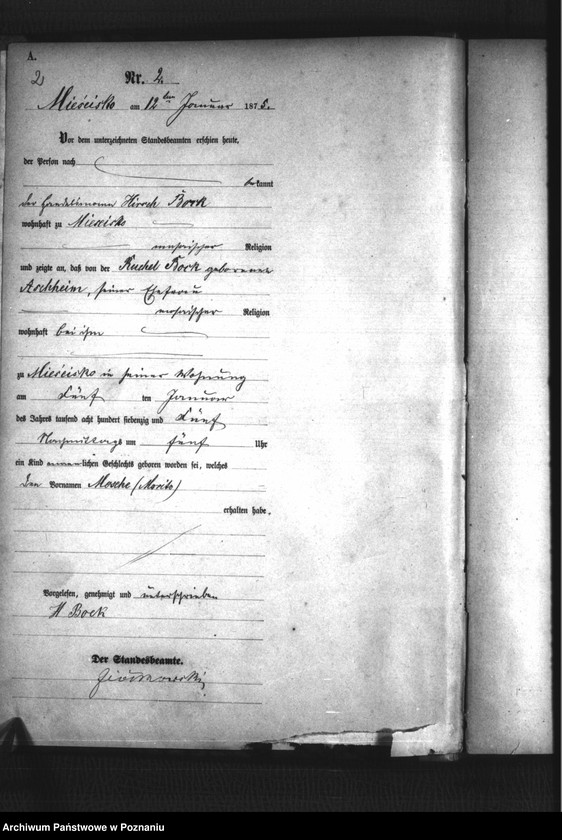 A.
2
Nr. 2.
Mieścisko am 12ten Januar 1875.
Vor dem unterzeichneten Standesbeamten erschien heute,
der Person nach
bekannt
der Handelsmann Hirsch Bock
wohnhaft zu Mieścisko
mosaischer Religion
und zeigte an, daß von der Ruchel Bock geborenen
Aschheim, seiner Ehefrau
mosaischer Religion
wohnhaft bei ihm
zu Mieścisko in seiner Wohnung
am Fünf ten Januar
des Jahres tausend acht hundert siebenzig und Fünf
Nachmittags um fünf Uhr
ein Kind männlichen Geschlechts geboren worden sei, welches
den Vornamen Mosche (Moritz)
erhalten habe.
Vorgelesen, genehmigt und unterschrieben
H Bock
Der Standesbeamte.
Archiwum Państwowe w Poznaniu